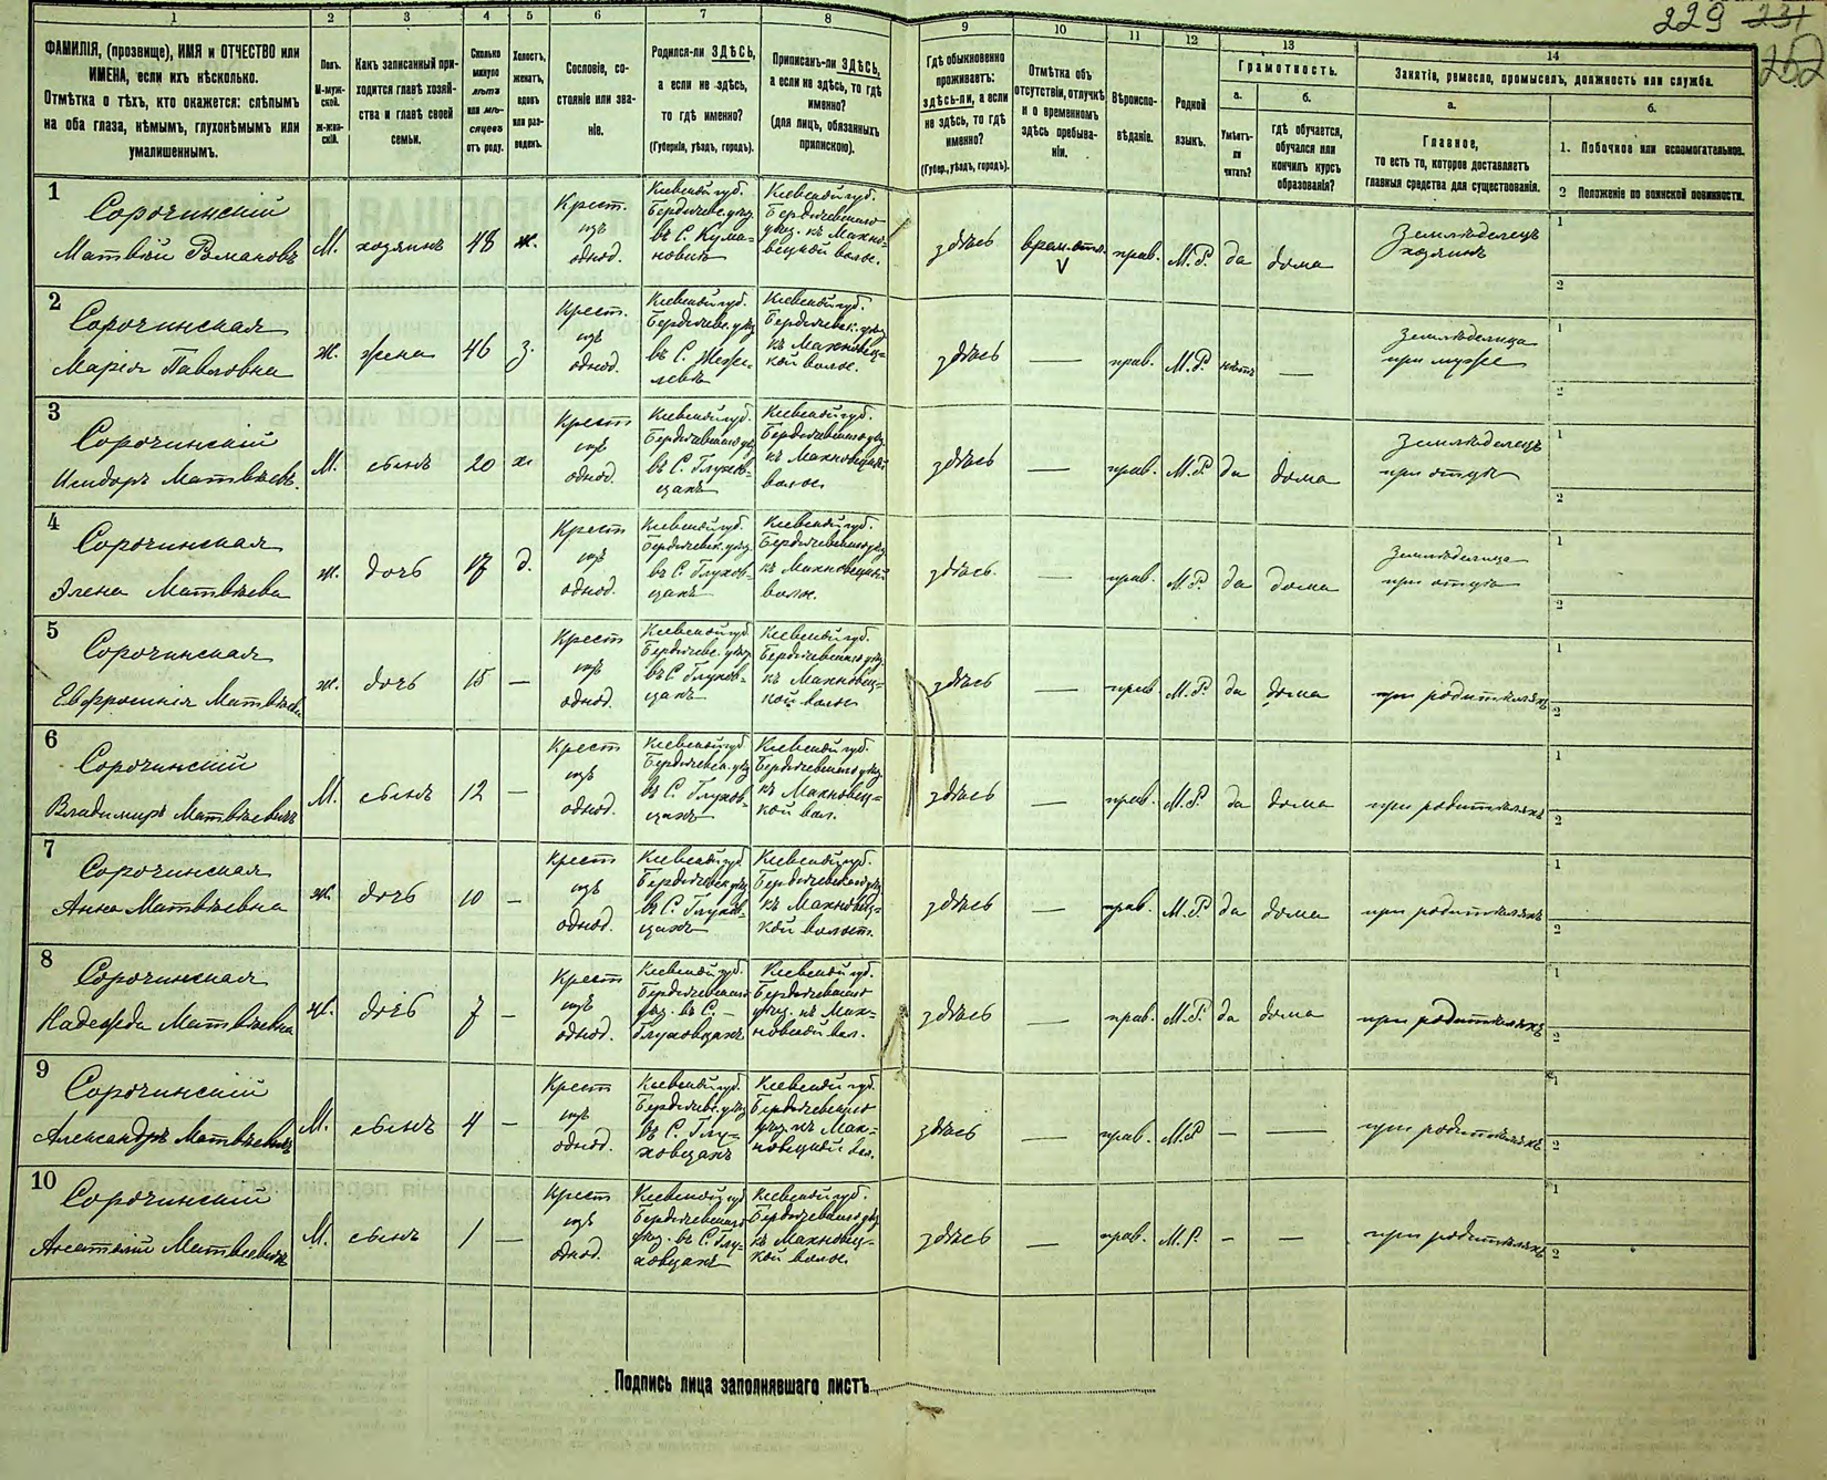 229 231
252
1 2 3 4 5 6 7 8 9 10 11 12 13 14
ФАМИЛІЯ, (прозвище), ИМЯ и ОТЧЕСТВО или
ИМЕНА, если ихъ нѣсколько.
Отмѣтка о тѣхъ, кто окажется: слѣпымъ
на оба глаза, нѣмымъ, глухонѣмымъ или
умалишеннымъ.
Полъ.
М-муж-
ской.
Ж-жен-
скій.
Какъ записанный при-
ходится главѣ хозяй-
ства и главѣ своей
семьи.
Сколько
минуло
лѣтъ
или мѣ-
сяцевъ
отъ роду.
Холостъ,
женатъ,
вдовъ
или раз-
веденъ.
Сословіе, со-
стояніе или зва-
ніе.
Родился-ли ЗДѢСЬ,
а если не здѣсь,
то гдѣ именно?
(Губернія, уѣздъ, городъ).
Приписанъ-ли ЗДѢСЬ,
а если не здѣсь, то гдѣ
именно?
(для лицъ, обязанныхъ
припискою).
Гдѣ обыкновенно
проживаетъ:
здѣсь-ли, а если
не здѣсь, то гдѣ
именно?
(Губер., уѣздъ, городъ).
Отмѣтка объ
отсутствіи, отлучкѣ
и о временномъ
здѣсь пребыва-
ніи.
Вѣроиспо-
вѣданіе.
Родной
языкъ.
Грамотность.
а.
Умѣетъ-
ли
читать?
б.
гдѣ обучается,
обучался или
кончилъ курсъ
образованія?
Занятіе, ремесло, промыселъ, должность или служба.
а.
Главное,
то есть то, которое доставляетъ
главныя средства для существованія.
б.
1. Побочное или вспомогательное.
2 Положеніе по воинской повинности.
1
Сорочинскій
Матвѣй Романовъ
М. хозяинъ 48 ж.
Крест.
изъ
однод.
Кіевской губ.
Бердичевс. уѣз.
въ С. Кума-
новкѣ
Кіевской губ.
Бердичевскаго
уѣз. къ Махно-
вецкой волос.
здѣсь врем. отл. прав. М.Р. да дома
V
Земледѣлецъ
хозяинъ
1
2
2
Сорочинская
Марія Павловна
ж. жена 46 з.
Крест.
изъ
однод.
Кіевской губ.
Бердичевс. уѣз.
въ С. Жеже-
левкѣ
Кіевской губ.
Бердичевск. уѣз.
къ Махновец-
кой волос.
здѣсь — прав. М.Р. нѣтъ —
Земледѣлица
при мужѣ
1
2
3
Сорочинскій
Исидоръ Матвѣевъ.
М. сынъ 20 х.
Крест
изъ
однод.
Кіевской губ.
Бердичевскаго уѣз.
въ С. Глухов-
цахъ
Кіевской губ.
Бердичевскаго уѣз.
къ Махновецкой
волос.
здѣсь — прав. М.Р. да дома
Земледѣлецъ
при отцѣ
1
2
4
Сорочинская
Элена Матвѣева
ж. дочь 17 д.
Крест
изъ
однод.
Кіевской губ.
Бердичевск. уѣз.
въ С. Глухов-
цахъ
Кіевской губ.
Бердичевскаго уѣз.
къ Махновецкой
волос.
здѣсь. — прав. М.Р. да дома
Земледѣлица
при отцѣ
1
2
5
Сорочинская
Евфросинія Матвѣева
ж. дочь 15 —
Крест
изъ
однод.
Кіевской губ.
Бердичевс. уѣз.
въ С. Глухов-
цахъ
Кіевской губ.
Бердичевскаго уѣз.
къ Махновец-
кой волос
здѣсь — прав. М.Р. да дома при родителяхъ
1
2
6
Сорочинскій
Владимиръ Матвѣевичъ
М. сынъ 12 —
Крест
изъ
однод.
Кіевской губ.
Бердичевск. уѣз.
въ С. Глухов-
цахъ
Кіевской губ.
Бердичевскаго уѣз.
къ Махновец-
кой вол.
здѣсь — прав. М.Р. да дома при родителяхъ
1
2
7
Сорочинская
Анна Матвѣевна
ж. дочь 10 —
Крест
изъ
однод.
Кіевской губ
Бердичевск. уѣз.
въ С. Глухов-
цахъ
Кіевской губ.
Бердичевскаго уѣз
къ Махновец-
кой волост.
здѣсь — прав. М.Р. да дома при родителяхъ
1
2
8
Сорочинская
Надежда Матвѣевна
ж. дочь 7 —
Крест
изъ
однод.
Кіевской губ.
Бердичевскаго
уѣз. въ С. —
Глуховцахъ
Кіевской губ.
Бердичевскаго
уѣз. къ Мах-
новецкой вол.
здѣсь — прав. М.Р. да дома при родителяхъ
1
2
9
Сорочинскій
Александръ Матвѣевичъ
М. сынъ 4 —
Крест
изъ
однод.
Кіевской губ.
Бердичевс. уѣз
въ С. Глу-
ховцахъ
Кіевской губ.
Бердичевскаго
уѣз. къ Мах-
новецкой вол.
здѣсь — прав. М.Р — — при родителяхъ
1
2
10
Сорочинскій
Анатолій Матвѣевичъ
М. сынъ 1 —
Крест
изъ
однод.
Кіевской губ
Бердичевскаго
уѣз. въ С. Глу-
ховцахъ
Кіевской губ.
Бердичевскаго уѣз
къ Махновец-
кой волос.
здѣсь — прав. М.Р. — — при родителяхъ
1
2
Подпись лица заполнявшаго листъ